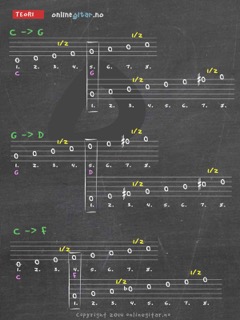 TEORI onlinegitar.no
C -> G
1/2
1/2
1. 2. 3. 4. 5. 6. 7. 8.
C G
1/2
1. 2. 3. 4. 5. 6. 7. 8.
G -> D
1/2
1/2
1. 2. 3. 4. 5. 6. 7. 8.
G D
1/2
1/2
1. 2. 3. 4. 5. 6. 7. 8.
C -> F
1/2
1/2
1. 2. 3. 4. 5. 6. 7. 8.
C F
1/2
1/2
1. 2. 3. 4. 5. 6. 7. 8.